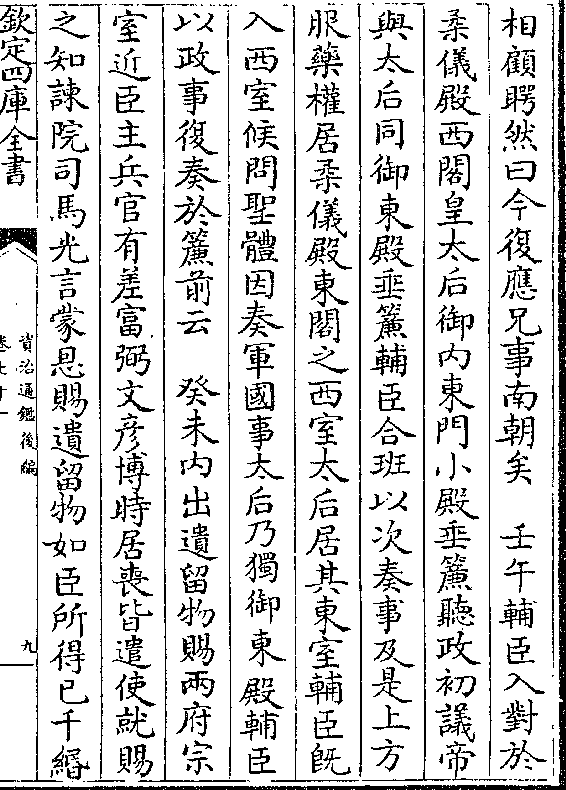 相顧聘然曰今復應兄事南朝矣　壬午輔臣入對於
柔儀殿西閣皇太后御内東門小殿垂簾聽政初議帝
與太后同御東殿垂簾輔臣合班以次奏事及是上方
服藥權居柔儀殿東閣之西室太后居其東室輔臣既
入西室候問聖體因奏軍國事太后乃獨御東殿輔臣
以政事復奏於簾前云　癸未内出遺留物賜兩府宗
室近臣主兵官有差富弼文彦博時居喪皆遣使就賜
之知諫院司馬光言蒙恩賜遺留物如臣所得已千緡
欽定四庫全書
資治通鑑後編
卷七十一
九